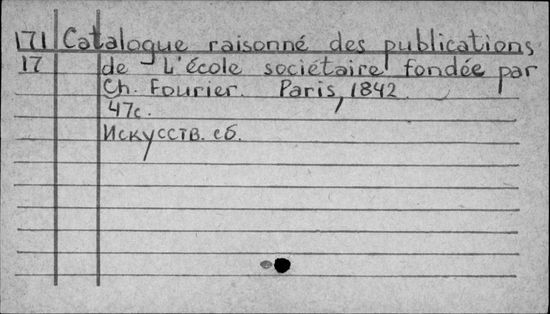 171 Catalogue raisonné des publications
17 de L'école sociétaire fondée par
Ch. Fourier. Paris, 1842.
47с.
Искусств. сб.